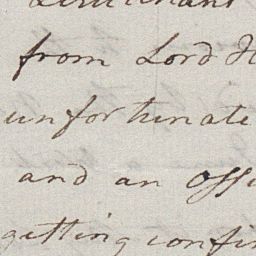 Lieutenant
from Lord H
unfortunate
and an Offi
getting confir